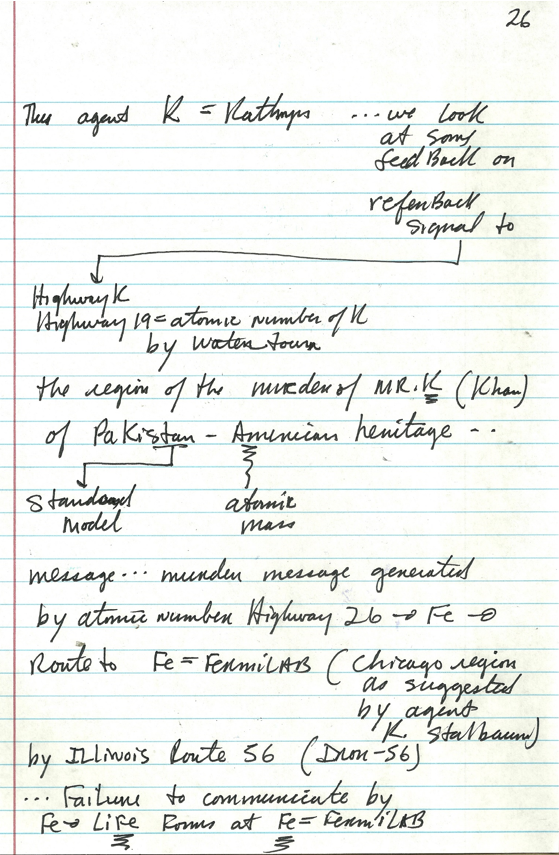 26
Thus agent K = Kathryn ... we look
at some
feedBack on
referBack
signal to
Highway K
Highway 19 = atomic number of K
by Watertown
the region of the murder of MR. K (Khan)
of Pakistan - American heritage ...
Standard
Model
atomic
mass
message ... murder message generated
by atomic number Highway 26 → Fe →
Route to Fe = FermiLAB (Chicago region
as suggested
by agent
K. Stalbaum)
by ILLinois Route 56 (Iron-56)
... Failure to communicate by
Fe → Life Forms at Fe = FermiLAB